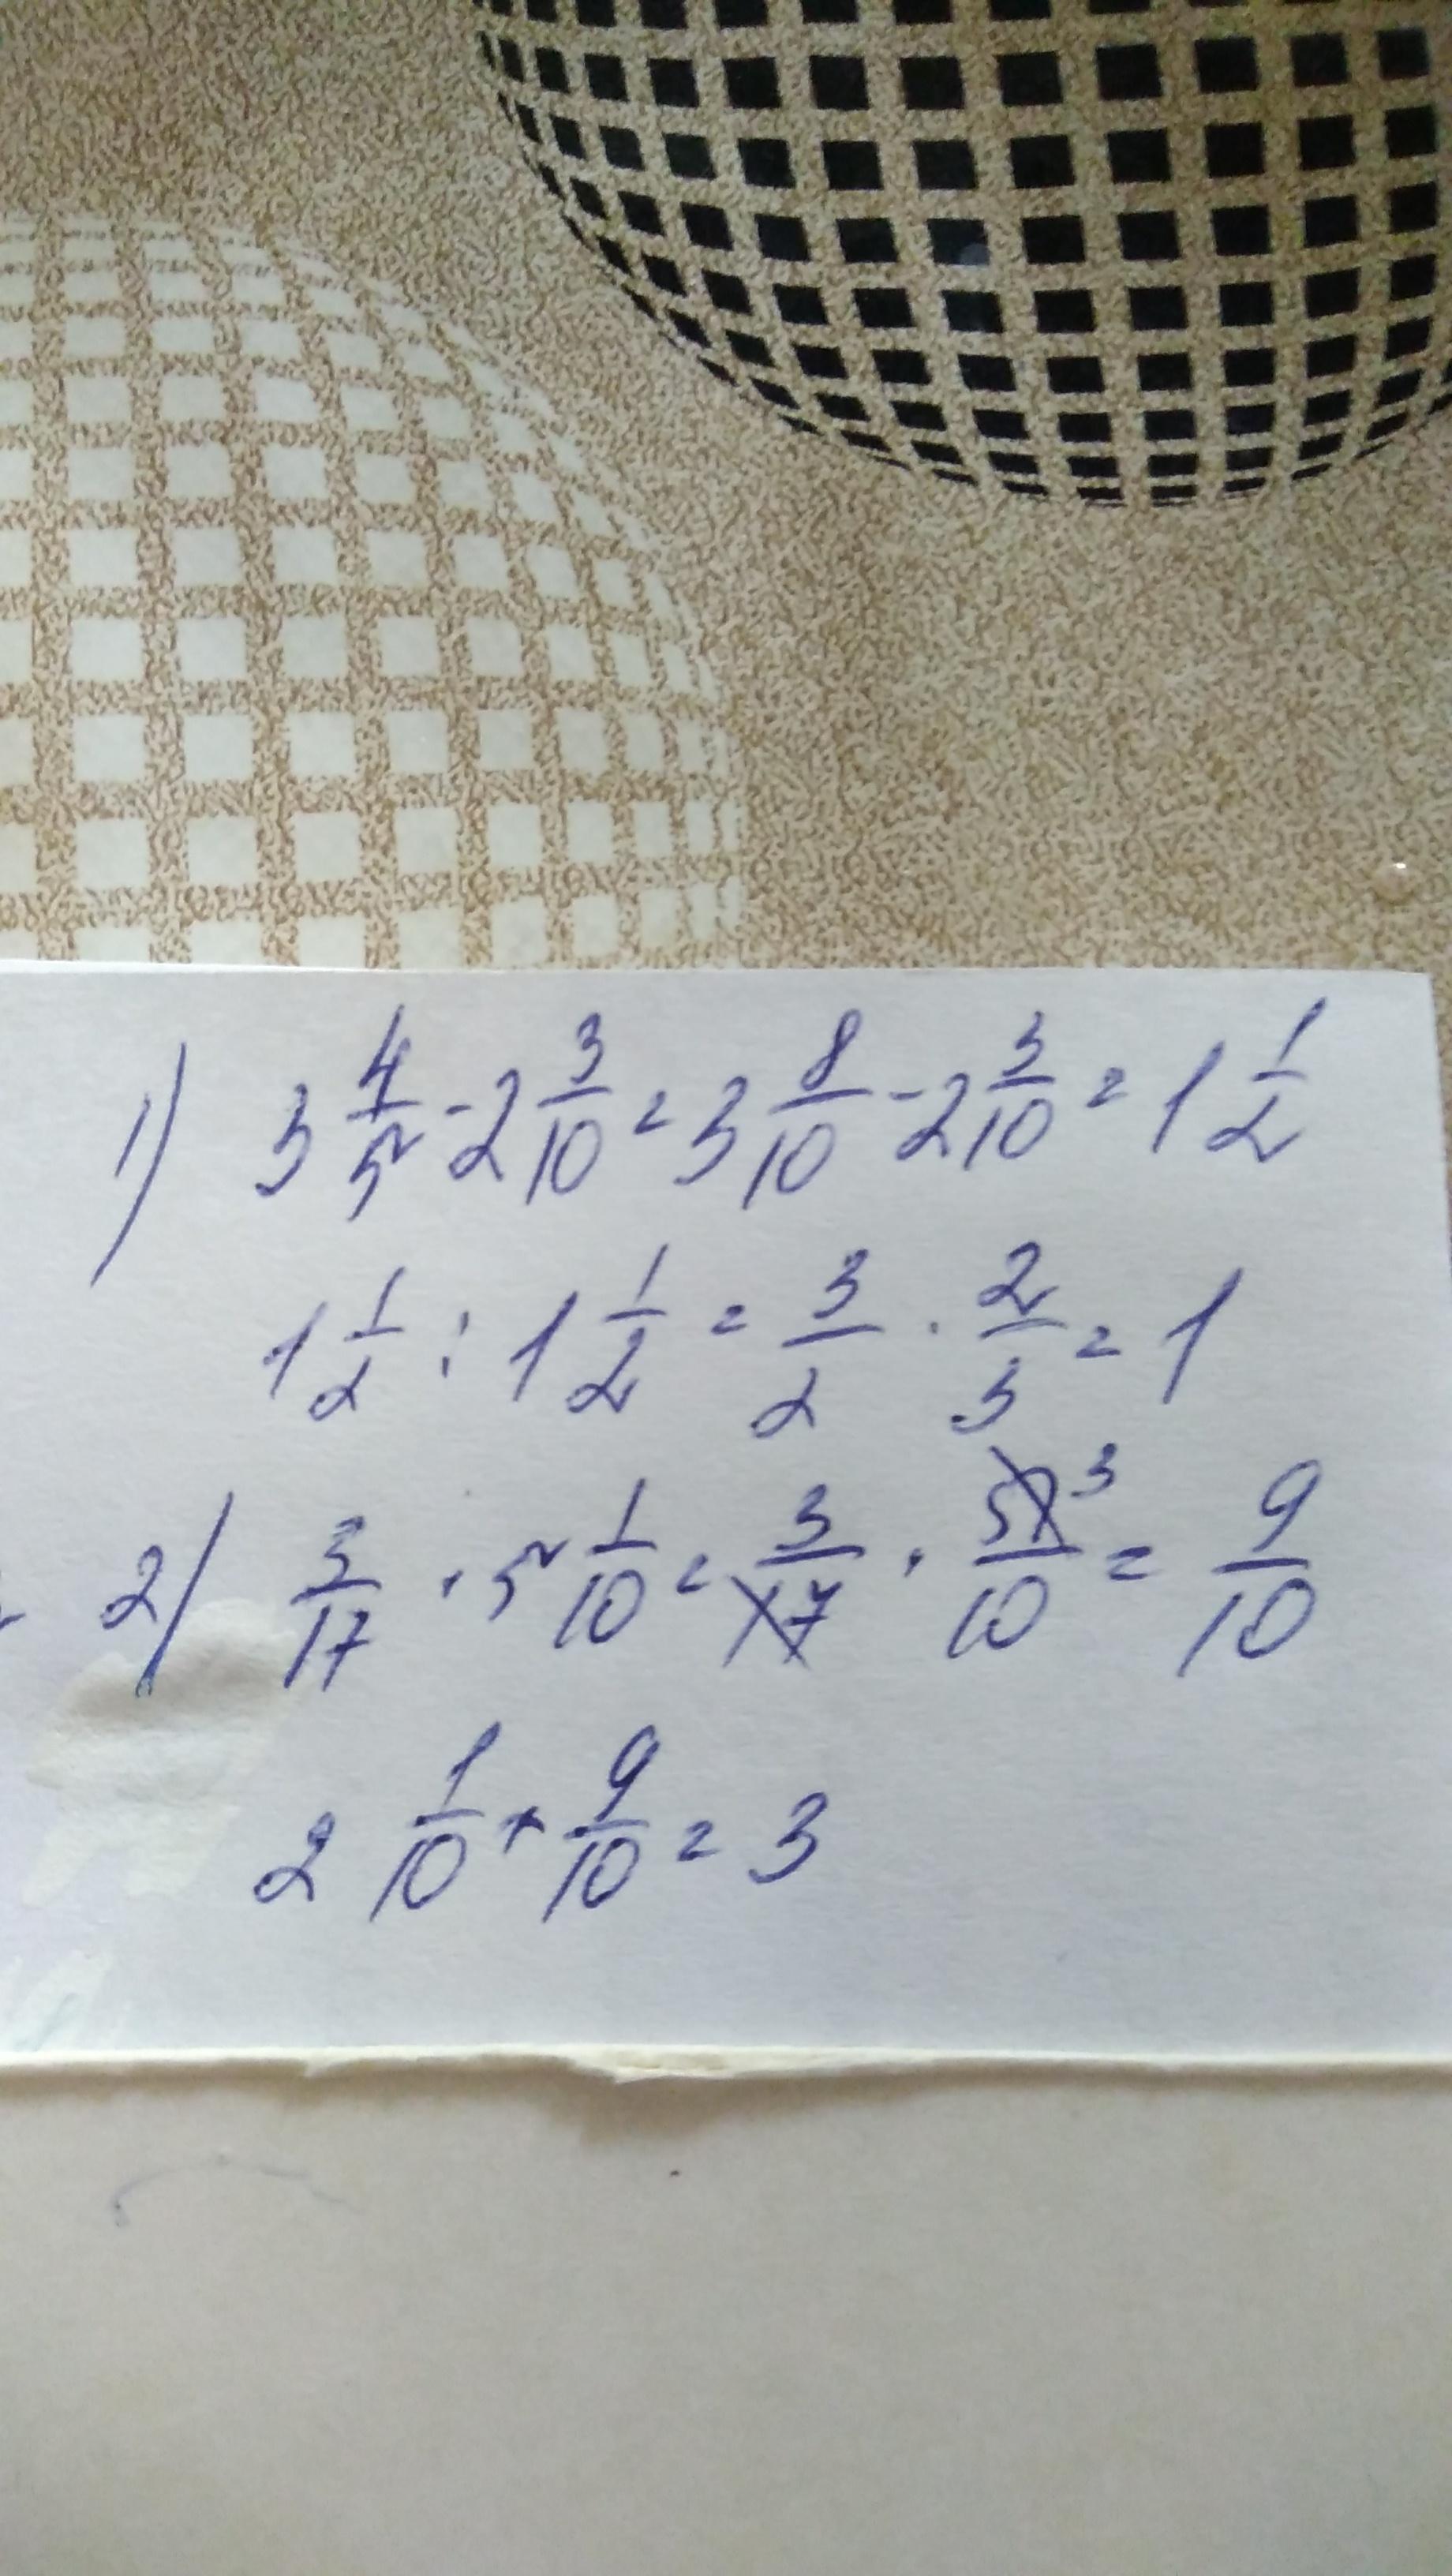 1) 3 4/5 - 2 3/10 = 3 8/10 - 2 3/10 = 1 1/2
1 1/2 : 1 1/2 = 3/2 · 2/3 = 1
2) 3/17 · 5 1/10 = 3/17 · 51/10 3 = 9/10
2 1/10 + 9/10 = 3